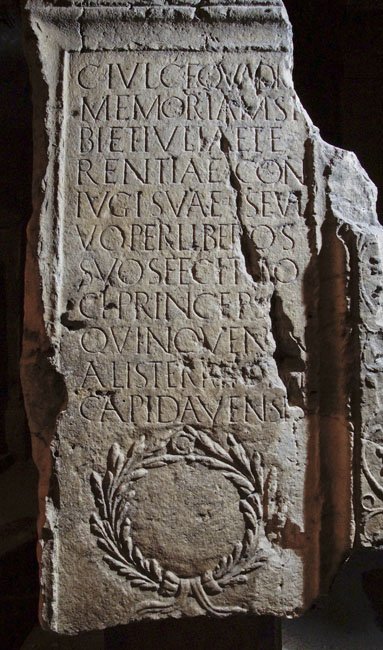 C IVL C F QVAD
MEMORIAM SI
BI ET IVLIAE TE
RENTIAE CON
IVGI SVAE SE V
VO PER LIBEROS
SVOS FECIT LO
CI PRINCEP
QVINQVEN
ALIS TERRI
CAPIDAVENSI